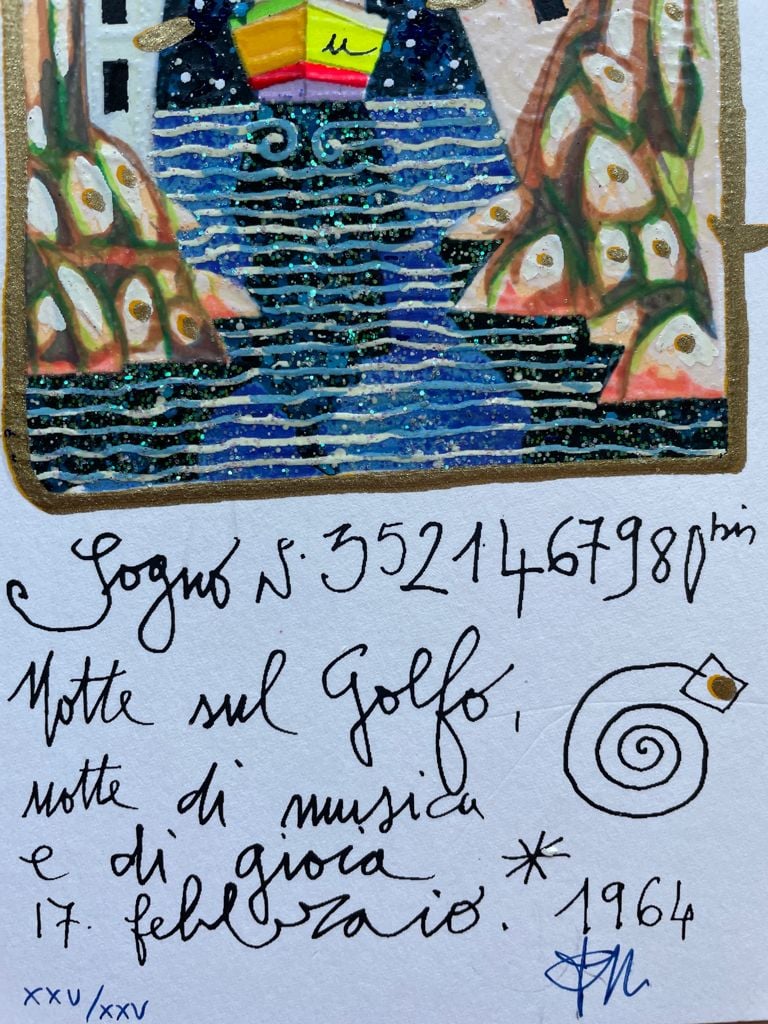 u
Sogno N. 3521467980 bis
Notte sul Golfo,
notte di musica
e di gioia *
17. febbraio. 1964
XXV/XXV